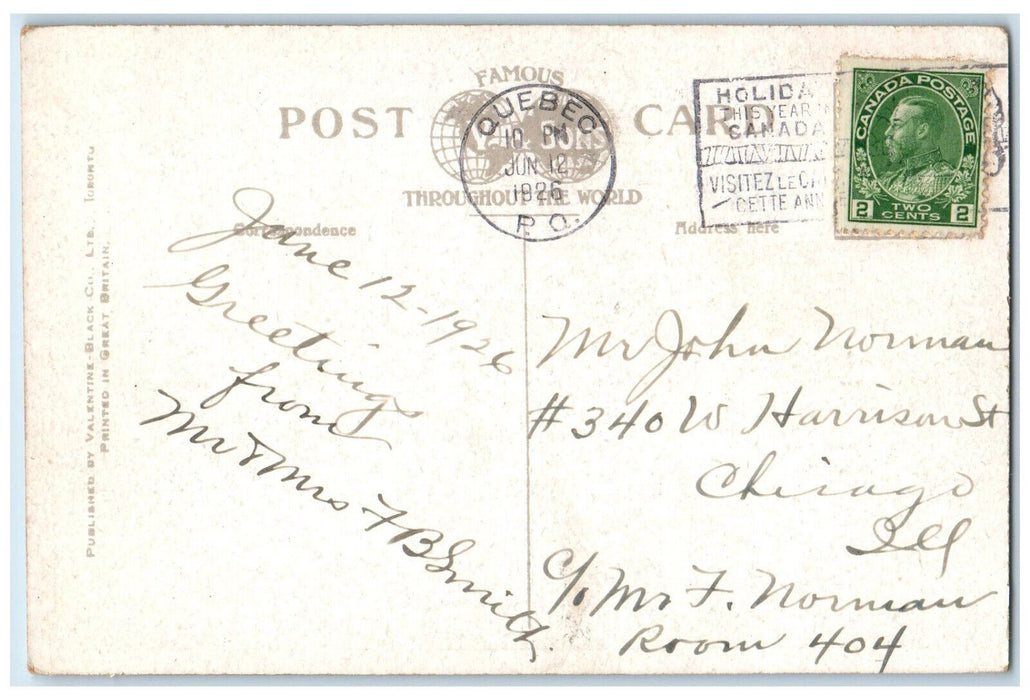 FAMOUS
POST CARD
V. & SONS
THROUGHOUT THE WORLD
QUEBEC
10 PM
JUN 12
1926
P.Q.
HOLIDA
THIS YEAR
CANADA
VISITEZ LE CA
CETTE ANN
CANADA POSTAGE
2 TWO CENTS 2
Correspondence
Address here
PUBLISHED BY VALENTINE-BLACK CO., LTD. TORONTO
PRINTED IN GREAT BRITAIN.
June 12-1926
Greetings
from
Mr & Mrs F B Smith.
Mr John Norman
#340 W Harrison St
Chicago
Ill
c/o Mr F. Norman
Room 404